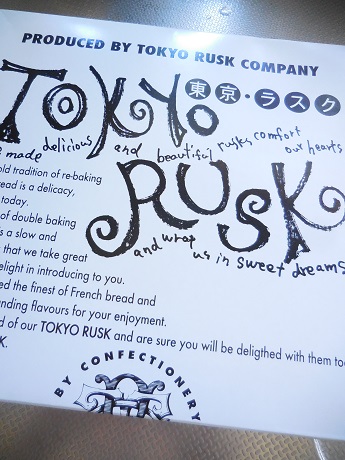 PRODUCED BY TOKYO RUSK COMPANY
TOKYO
東京・ラスク
made delicious and beautiful rusks comfort our hearts
RUSK
and wrap us in sweet dreams
old tradition of re-baking
read is a delicacy,
today.
of double baking
s a slow and
that we take great
elight in introducing to you.
ed the finest of French bread and
nding flavours for your enjoyment.
d of our TOKYO RUSK and are sure you will be deligthed with them too
K.
BY CONFECTIONERY